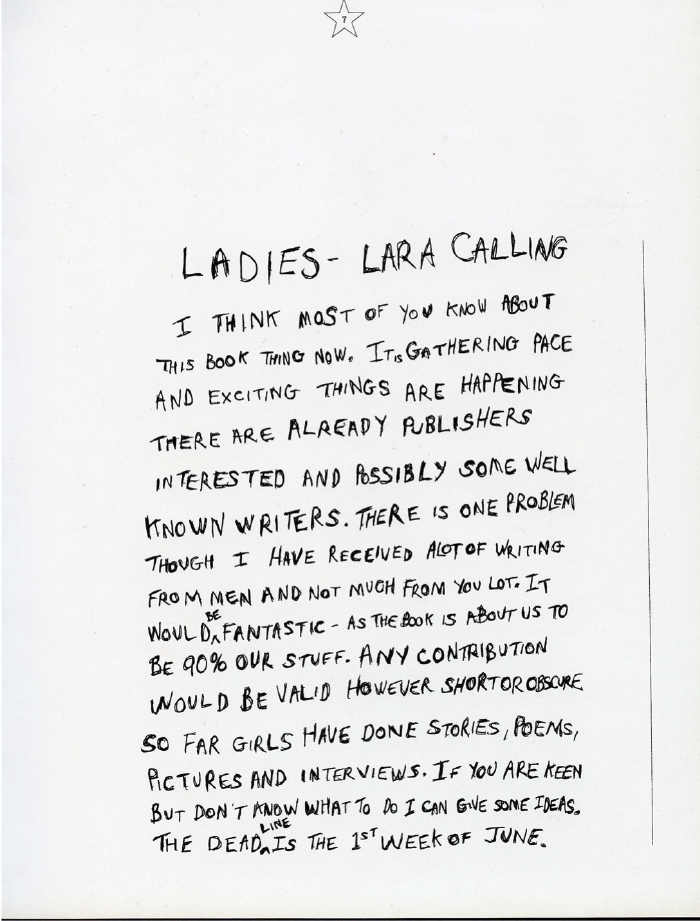 7
LADIES - LARA CALLING
I THINK MOST OF YOU KNOW ABOUT
THIS BOOK THING NOW. IT IS GATHERING PACE
AND EXCITING THINGS ARE HAPPENING
THERE ARE ALREADY PUBLISHERS
INTERESTED AND POSSIBLY SOME WELL
KNOWN WRITERS. THERE IS ONE PROBLEM
THOUGH I HAVE RECEIVED ALOT OF WRITING
FROM MEN AND NOT MUCH FROM YOU LOT. IT
WOULD BE FANTASTIC - AS THE BOOK IS ABOUT US TO
BE 90% OUR STUFF. ANY CONTRIBUTION
WOULD BE VALID HOWEVER SHORT OR OBSCURE
SO FAR GIRLS HAVE DONE STORIES, POEMS,
PICTURES AND INTERVIEWS. IF YOU ARE KEEN
BUT DON'T KNOW WHAT TO DO I CAN GIVE SOME IDEAS.
THE DEADLINE IS THE 1ST WEEK OF JUNE.